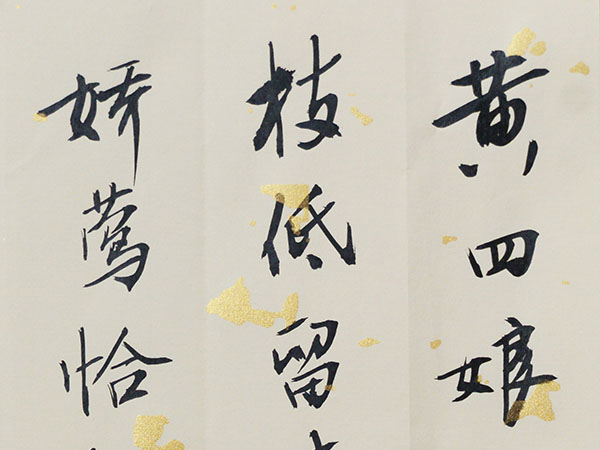 黄四娘
枝低留
娇莺恰